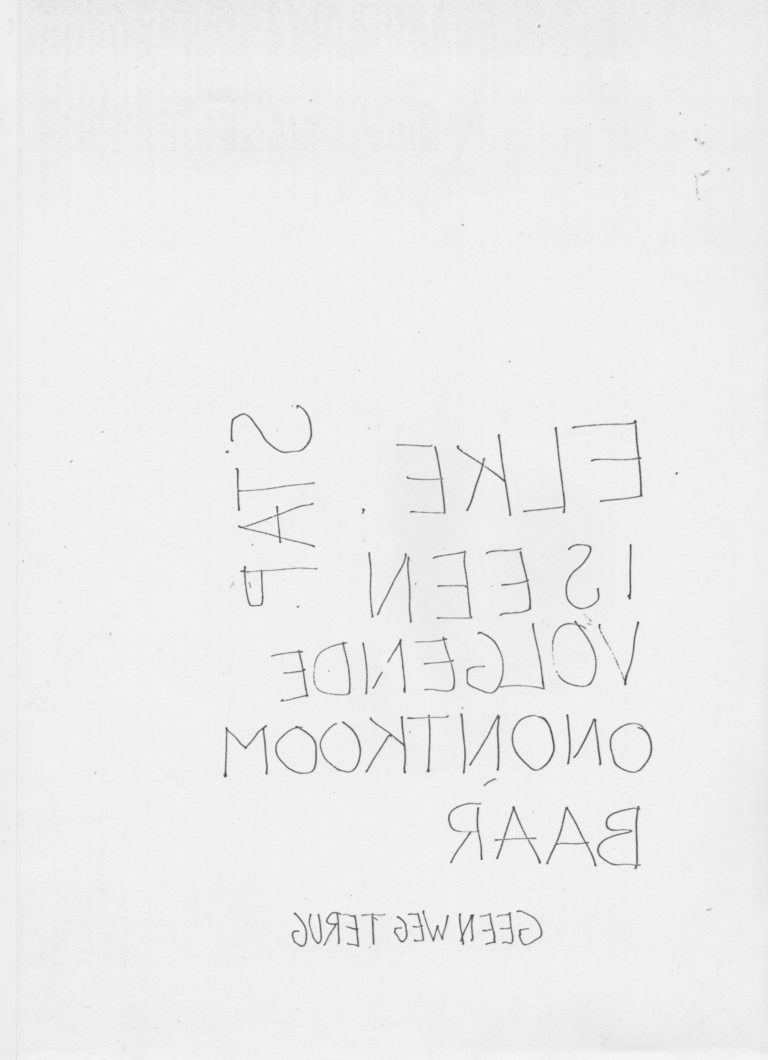 ELKE
STAP
IS EEN
VOLGENDE
ONONTKOOM
BAAR
GEEN WEG TERUG